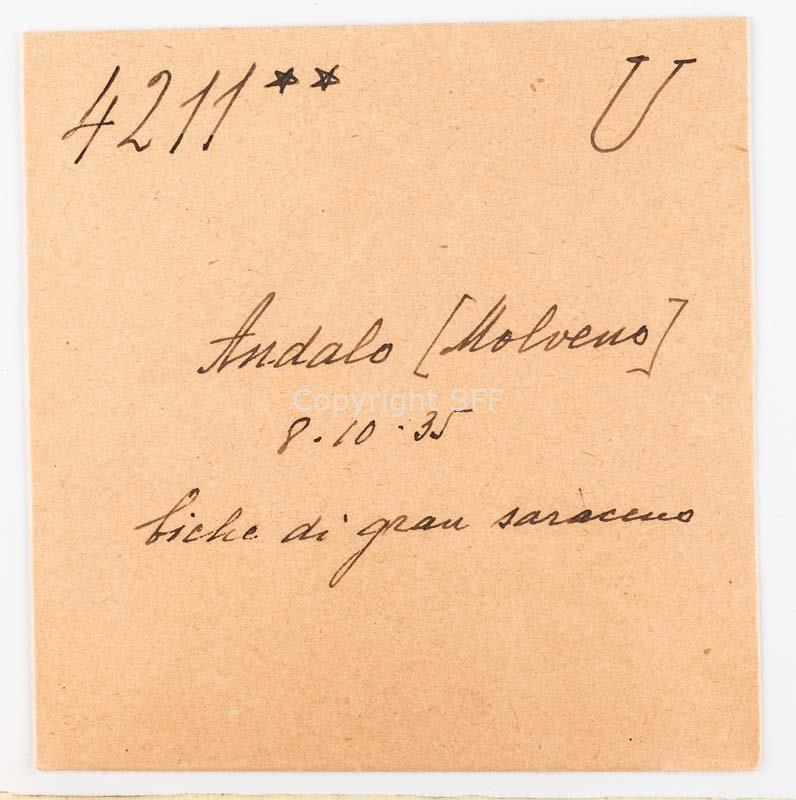 4211** U
Andalo [Molveno]
Copyright SFF
8.10.35
biche di gran saraceno